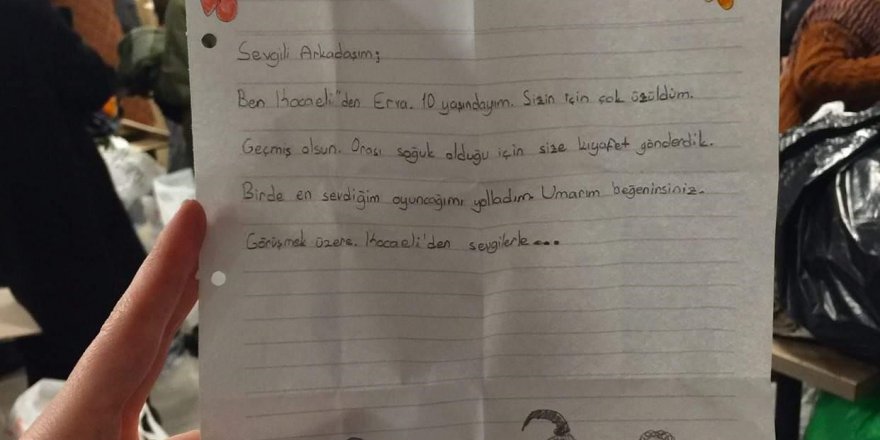 Sevgili Arkadaşım;
Ben Kocaeli'den Erva. 10 yaşındayım. Sizin için çok üzüldüm.
Geçmiş olsun. Orası soğuk olduğu için size kıyafet gönderdik.
Birde en sevdiğim oyuncağımı yolladım. Umarım beğenirsiniz.
Görüşmek üzere. Kocaeli'den sevgilerle...